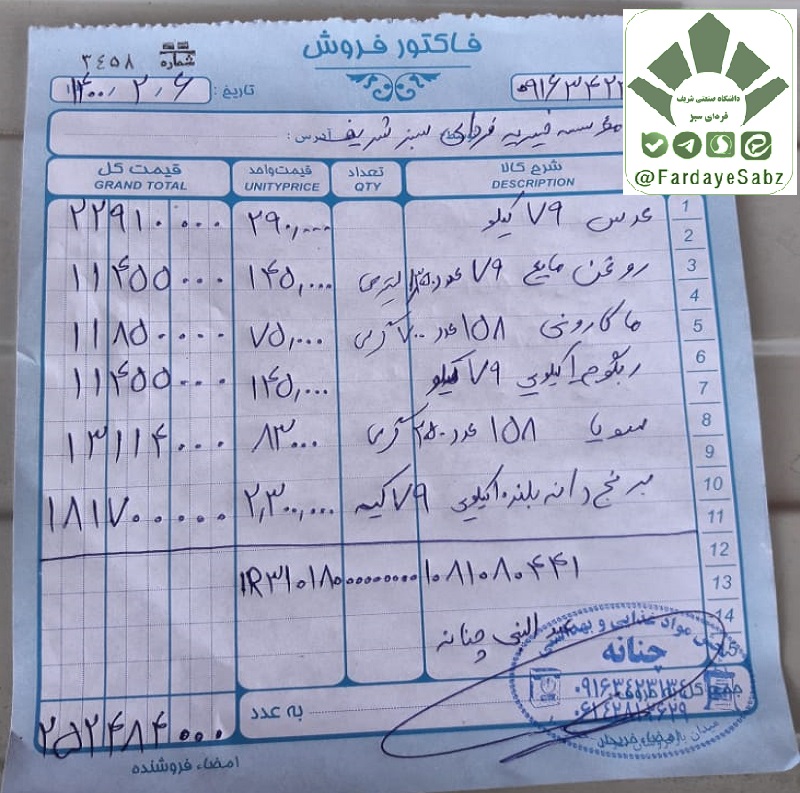 فاکتور فروش
شماره ۳۴۵۸
تاریخ: ۱۴۰۰/۲/۶
دانشگاه صنعتی شریف
فردای سبز
@FardayeSabz
مؤسسه خیریه فردای سبز شریف آدرس:
شرح کالا تعداد قیمت واحد قیمت کل
DESCRIPTION QTY UNITYPRICE GRAND TOTAL
1 عدس ۷۹ کیلو ۲۹۰,۰۰۰ ۲۲۹۱۰۰۰۰
2
3 روغن مایع ۷۹ عدد لیتری ۱۴۵,۰۰۰ ۱۱۴۵۵۰۰۰
4
5 ماکارونی ۱۵۸ عدد ۷۰۰ گرمی ۷۵,۰۰۰ ۱۱۸۵۰۰۰۰
6
7 کیلویی ۷۹ کیلو ۱۴۵,۰۰۰ ۱۱۴۵۵۰۰۰
8 سویا ۱۵۸ عدد ۲۵۰ گرمی ۸۳۰۰۰ ۱۳۱۱۴۰۰۰
9
10 برنج دانه بلند ۱۰ کیلویی ۷۹ کیسه ۲,۳۰۰,۰۰۰ ۱۸۱۷۰۰۰۰۰
11
12
13 IR۳۱۰۱۸۰۰۰۰۰۰۰۰۰۱۰۸۱۰۸۰۴۴۱
14
15 عبدالنبی چنانه
مواد غذایی و بهداشتی
چنانه
۰۹۱۶۳۴۲۳۱۳۴
۰۶۱۴۲۸۱۲۶۲۹
به عدد ۲۵۲۴۸۴۰۰۰
امضاء فروشنده